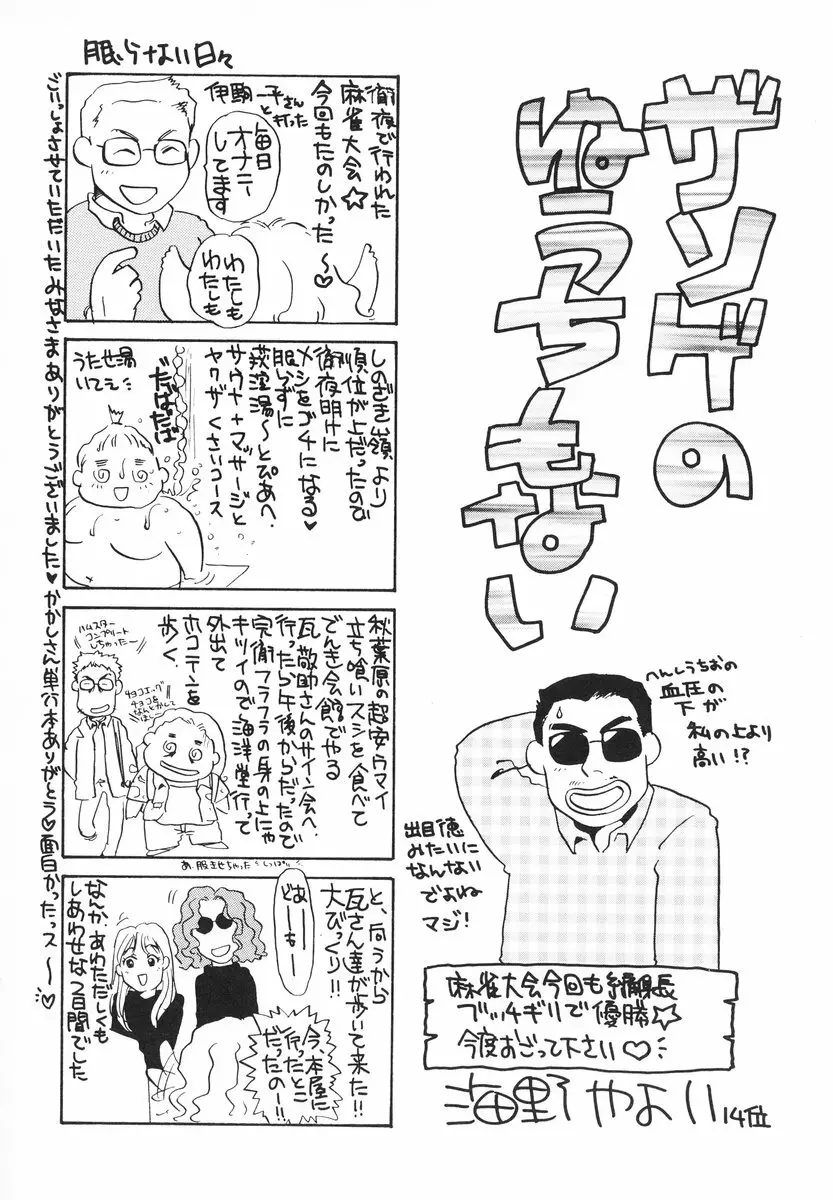 ザンゲの
ゆうちもない
へんしうちおの
血圧の
下が
私の上より
高い!?
出目徳
みたいに
なんない
でよね
マジ!
麻雀大会今回も編集長
ブッチギリで優勝☆
今度おごって下さい♡
海野やよい 14位
眠らない日々
徹夜で行われた
麻雀大会☆
今回もたのしかった~♡
伊駒一平さん
と打った
毎日
オナニー
してます
わたしも
わたしも
しのざき嶺より
順位が上だったので
徹夜明けに
メシをゴチになる♥
眠らずに
荻窪湯~とぴあへ
サウナ+マッサージと
ヤクザくさいコース
だばだば
うたせ湯
いてえ
秋葉原の超安ウマイ
立ち喰いスシを食べて
でんき会館でやる
瓦敬助さんのサイン会へ
行ったら午後からだったので
完徹フラフラの身の上にゃ
キツイので海洋堂行って
外出て
ホコテンを
歩く
ハムスター
コンプリート
しちゃったー
チョコエッグ
チョコを
なんとかして
あ、服きせちゃった
しっぱい
と、向うから
瓦さん達が歩いて来た!!
大びっくり!!
どおーーもーー
今、本屋に
行ったとこ
だったのー!!
なんか、あわただしくも
しあわせな2日間でした
ごいっしょさせていただいたみなさまありがとうございました♥かかしさん単行本ありがとう♡面白かったっス~♡